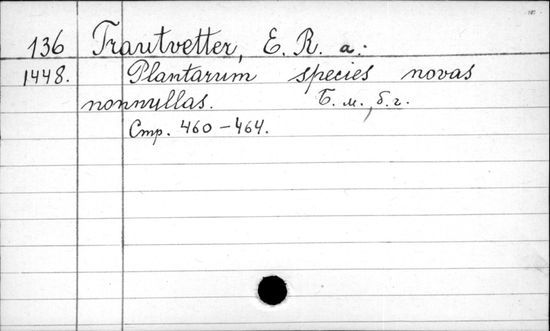 136 Trautvetter, E. R. a.:
1448. Plantarum species novas
nonnullas. Б. м., б. г.
Стр. 460-464.